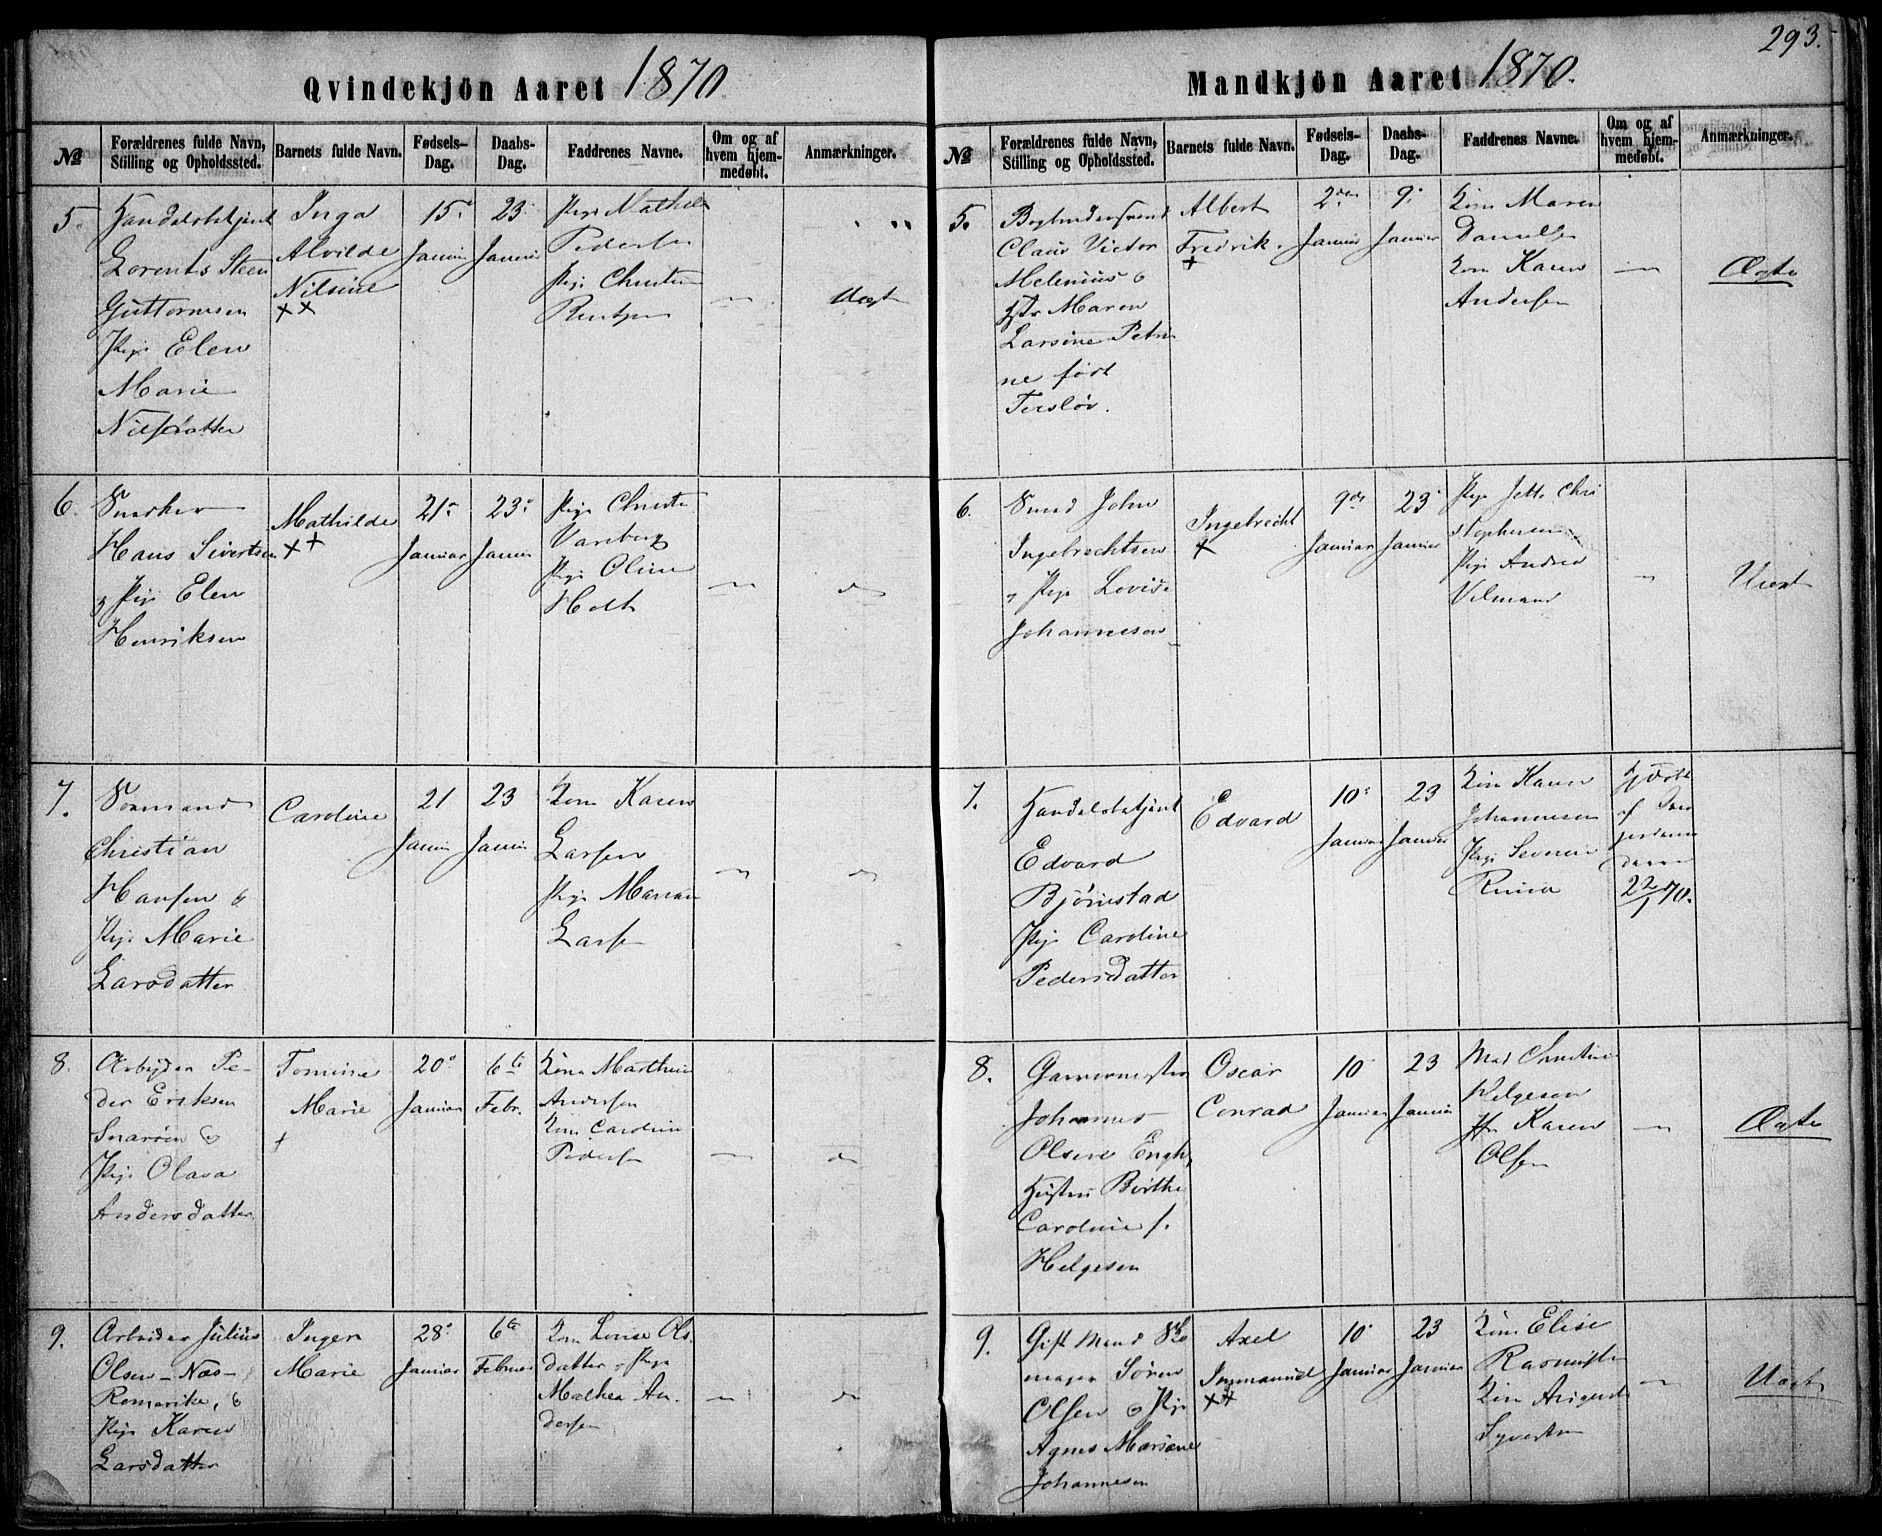 293.
Qvindekjön Aaret 1870
№
Forældrenes fulde Navn, Stilling og Opholdssted.
Barnets fulde Navn.
Fødsels-Dag.
Daabs-Dag.
Faddrenes Navne.
Om og af hvem hjemmedøbt.
Anmærkninger.
5.
Handelsbetjent
Lorents Steen
Guttormsen
Pige Elen
Marie
Nilsdatter
Inga
Alvilde
Nilsine
15
Januar
23
Januar
Pige Mathilde
Pedersen
Pige Christin
Uægte
6.
Snedker
Hans Sivertsen
Pige Elen
Henriksen
Mathilde
21
Januar
23
Januar
Pige
Pige Oline
Holt
do
7.
Sømand
Christian
Hansen &
Pige Marie
Larsdatter
Caroline
21
Januar
23
Januar
Kone Karen
Larsen
Pige Marian
Larsen
do
8.
Arbeider Pe-
der Eriksen
Snarøen &
Pige Olava
Andersdatter
Tomine
Marie
20
Januar
6te
Febr.
Kone Marthin
Andersen
Kone Caroline
Pedersen
do
9.
Arbeider Julius
Olsen - Næs -
Romerike, &
Pige Karen
Larsdatter
Inger
Marie
28
Januar
6te
Februar
Kone Lovise Ols-
datter & Pige
Mathea An-
dersen
do
Mandkjön Aaret 1870.
№
Forældrenes fulde Navn, Stilling og Opholdssted.
Barnets fulde Navn.
Fødsels-Dag.
Daabs-Dag.
Faddrenes Navne.
Om og af hvem hjemmedøbt.
Anmærkninger.
5.
Bogbindersvend
Claus Victor
Melenius &
Maren
Larsine Petri
ne født
Terslöv.
Albert
Fredrik.
2den
Januar
9
Januar
Kone Maren
Danielsen
Kone Karen
Andersen
Ægte
6.
Smed John
Ingebrechtsen
& Pige Lovise
Johannesen
Ingebrecht
9de
Januar
23
Januar
Pige Jette Chri
stophersen
Pige Andrea
Uægte
7.
Handelsbetjent
Edvard
Bjørnstad
Pige Caroline
Pedersdatter
Edvard
10
Januar
23
Januar
Kone Karen
Johannesen
Pige Severin
af
Jordemo
22/1 70.
8.
Garvermester
Johannes
Olsen Engh,
Hustru Birthe
Caroline f.
Helgesen
Oscar
Conrad
10
Januar
23
Januar
Mad Christine
Helgesen
Karen
Olsen
Ægte
9.
Gift Mand Sko
mager Søren
Olsen & Pige
Agnes Mariane
Johannesen
Axel
Ingmanuel
10
Januar
23
Januar
Kone Elise
Kone
Uægte